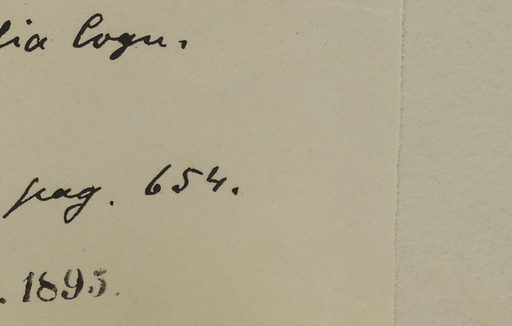 lia Cogn.
pag. 654.
. 1895.